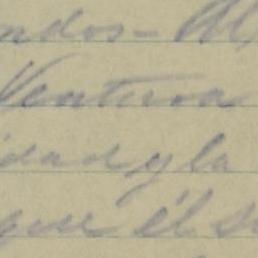 ndos-
Ventura
idad y la
que él s